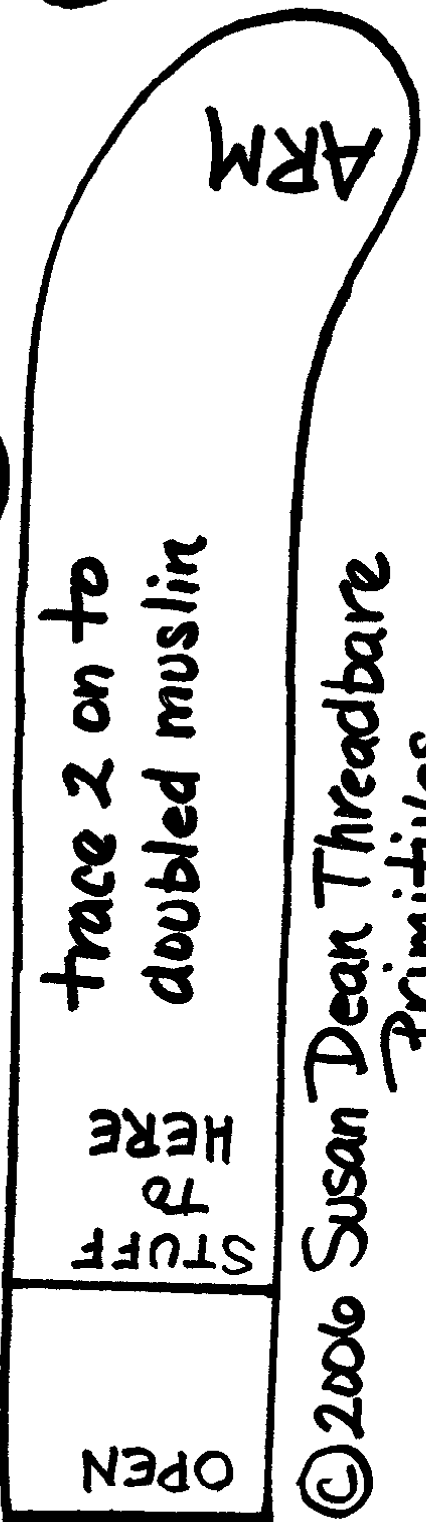 ARM
trace 2 on to
doubled muslin
OPEN
STUFF
to
HERE
© 2006 Susan Dean Threadbare
Primitives